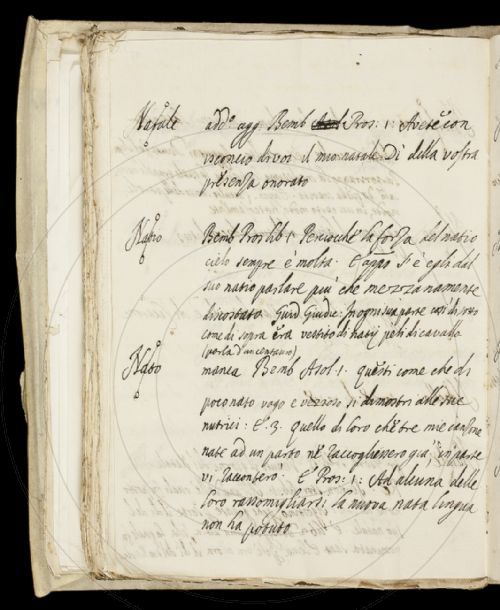 Natale add.º agg Bemb Pros: 1: Avete con
isconcio di voi il mio natale Dì della vostra
presenza onorato
Natio Bemb Pros lib 1 Perciocchè la forza del natio
cielo sempre è molta. E appo s'è egli dal
suo natio parlare più che mezzanamente
discostato Guid Giudic: In ogni sua parte così di sotto
come di sopra era vestito di natij peli di cavallo
(parla d'un centauro)
Nato manca Bemb Asol. 1. questi come che di
poco nato vago e vezzoso si dimostri alle sue
nutrici: E 3. quello di loro ch'è tre mie canzone
nate ad un parto nè raccogliessero già, in parte
vi racconterò. E Pros: 1: Ad alcuna delle
loro rassomigliarsi la nuova nata lingua
non ha potuto